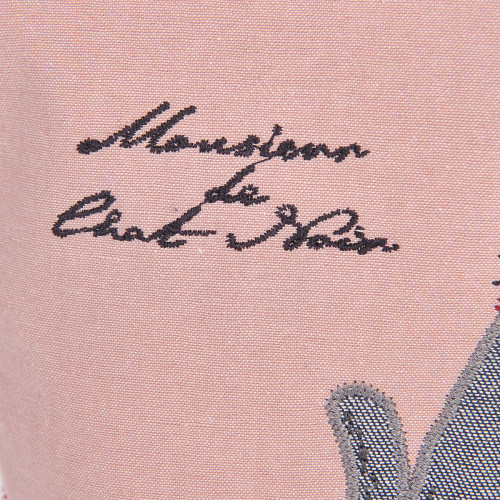 Monsieur
de
Chat Noir